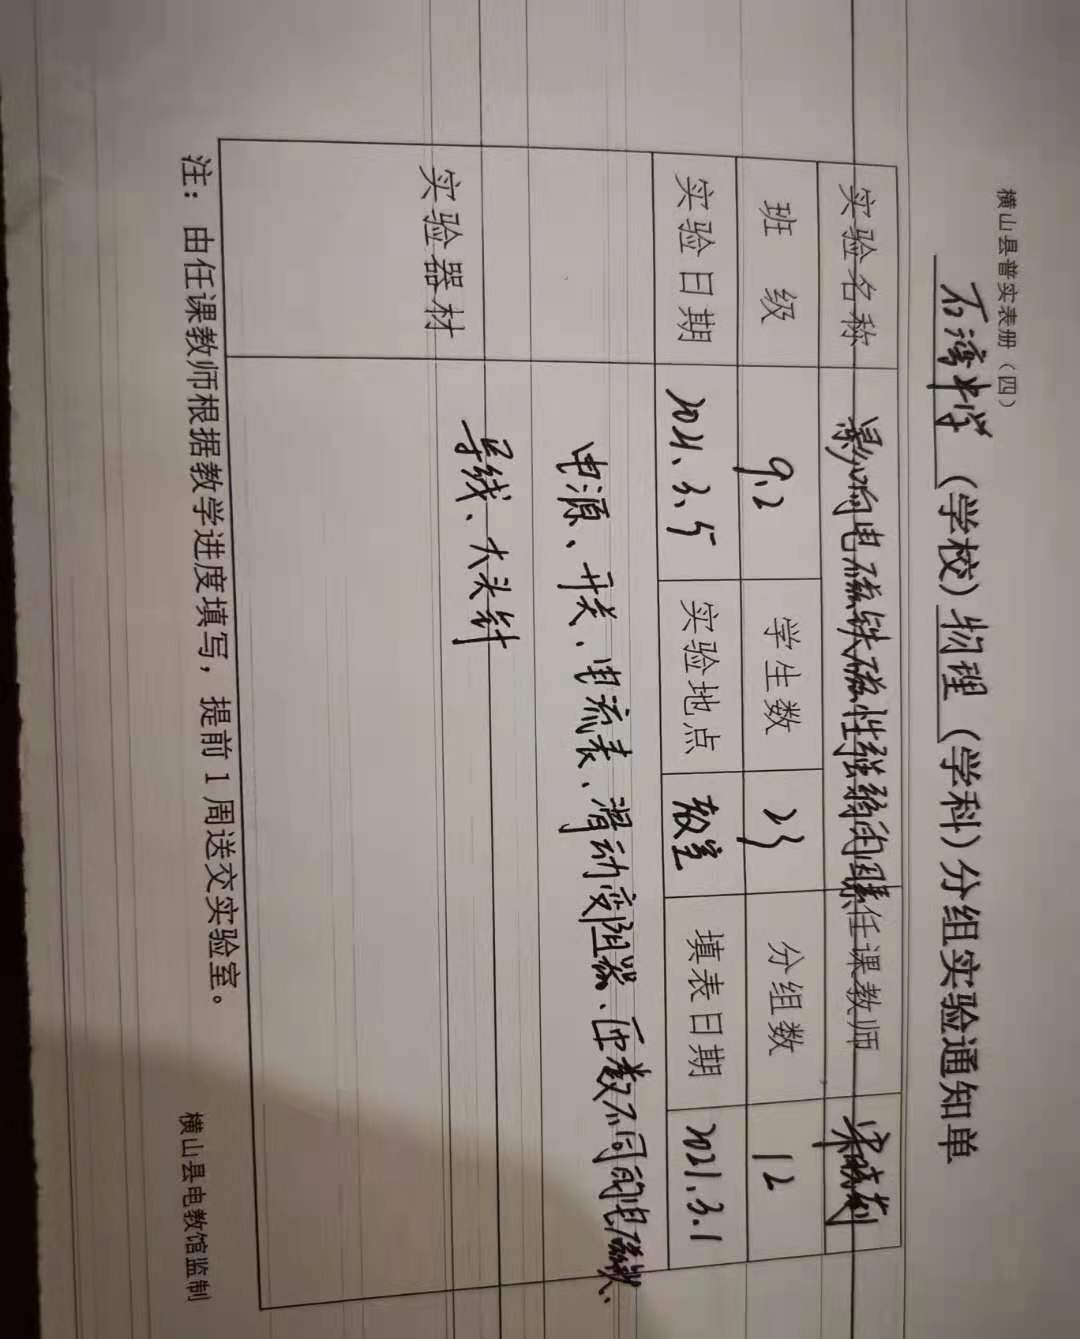 横山县普实表册（四）
石湾中学（学校）物理（学科）分组实验通知单
实验名称 影响电磁铁磁性强弱的因素 任课教师
班 级 9.2 学生数 23 分组数 12
实验日期 2021.3.5 实验地点 教室 填表日期 2021.3.1
电源、开关、电流表、滑动变阻器、匝数不同的电磁铁、
实验器材 导线、大头针
注：由任课教师根据教学进度填写，提前1周送交实验室。
横山县电教馆监制